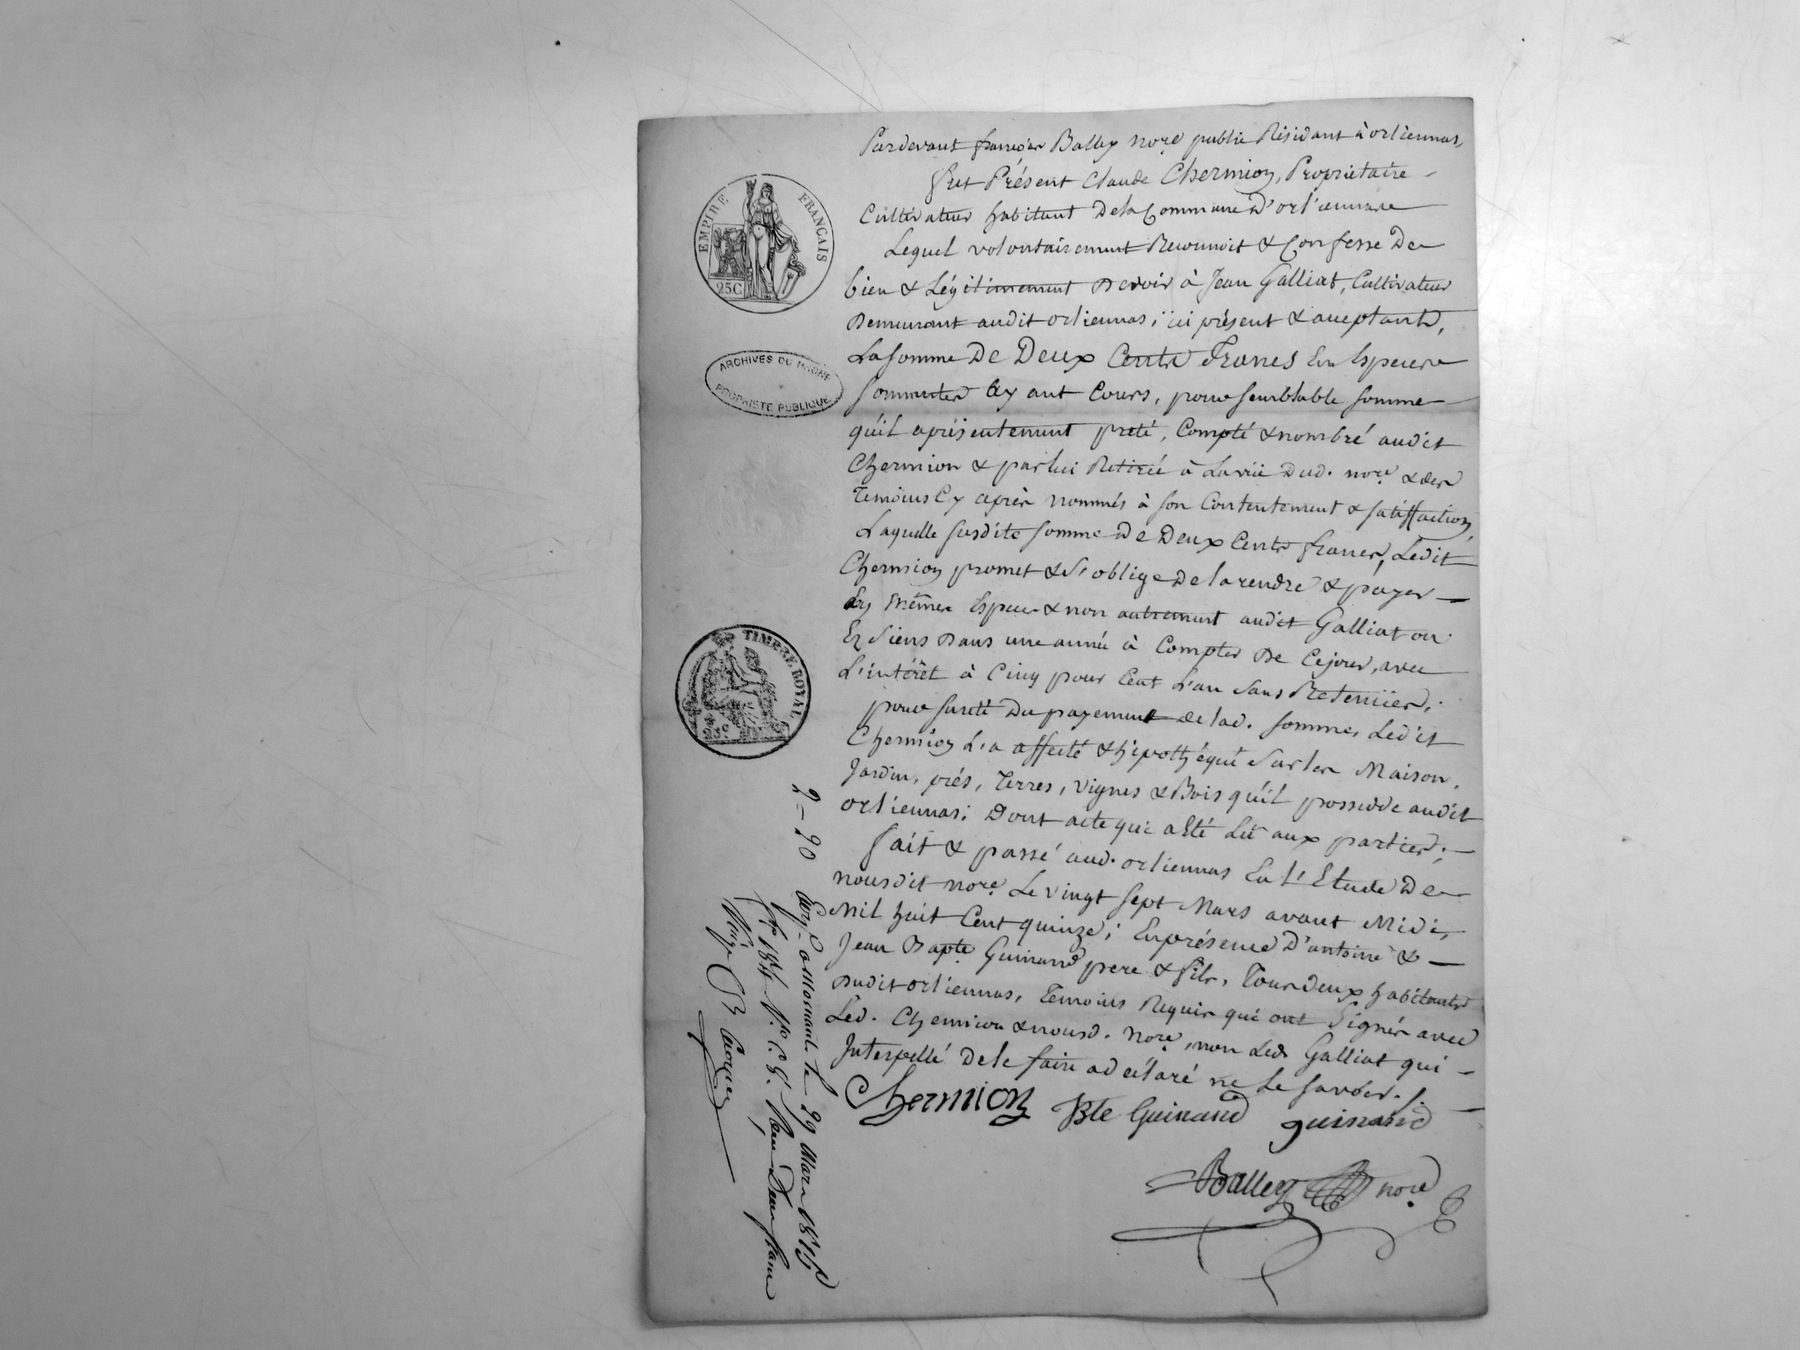 Pardevant françois Balley nore. public Résidant à orliennas,
fut Présent Claude Chermion, Propriétaire
Cultivateur habitant dela Commune d'orliennas
Lequel volontairement Reconnoit & Confesse De
bien & Légitimement Devoir à Jean Galliat, Cultivateur
Demeurant audit orliennas, ici présent & acceptant,
La somme De Deux Cents Francs En Especes
sonnantes Ayant Cours, pour semblable somme
qu'il a présentement preté, Compté & nombré audit
Chermion & par lui Retirée à La vüe Dud. nore. & des
Temoins Cy après nommés à son Contentement & satisffaction,
Laquelle susdite somme De Deux Cents francs, Ledit
Chermion promet & s'oblige De la rendre & payer
En mêmes Especes & non autrement audit Galliat ou
Ez Siens Dans une année à Compter De Cejour, avec
L'intérêt à Cinq pour Cent L'an Sans Retenües,
pour sureté Du payement de lad. somme, Ledit
Chermion L'a affecté & hipothéqué Sur les Maison,
Jardin, prés, Terres, Vignes & Bois qu'il possedde audit
orliennas; Dont acte qui a Eté Lû aux parties;
fait & passé aud. orliennas En L'Etude De
nousdit nore. Le vingt sept Mars avant Midi,
Mil huit Cent quinze; En présence D'antoine &
Jean Bapte Guinand pere & fils, Tous Deux habitants
dudit orliennas, Temoins Requis qui ont Signés avec
Led. Chermion & nousd. nore, non Led. Galliat qui
Interpellé De le faire a déclaré ne Le savoir.
Chermion JBte Guinand guinand
Balley nore
EMPIRE FRANÇAIS
25C
ARCHIVES DU RHÔNE
PROPRIETE PUBLIQUE
TIMBRE ROYAL
25c
2 - 20 Enrg. a Mornant le 29 Mars 1815
Reçu Deux francs